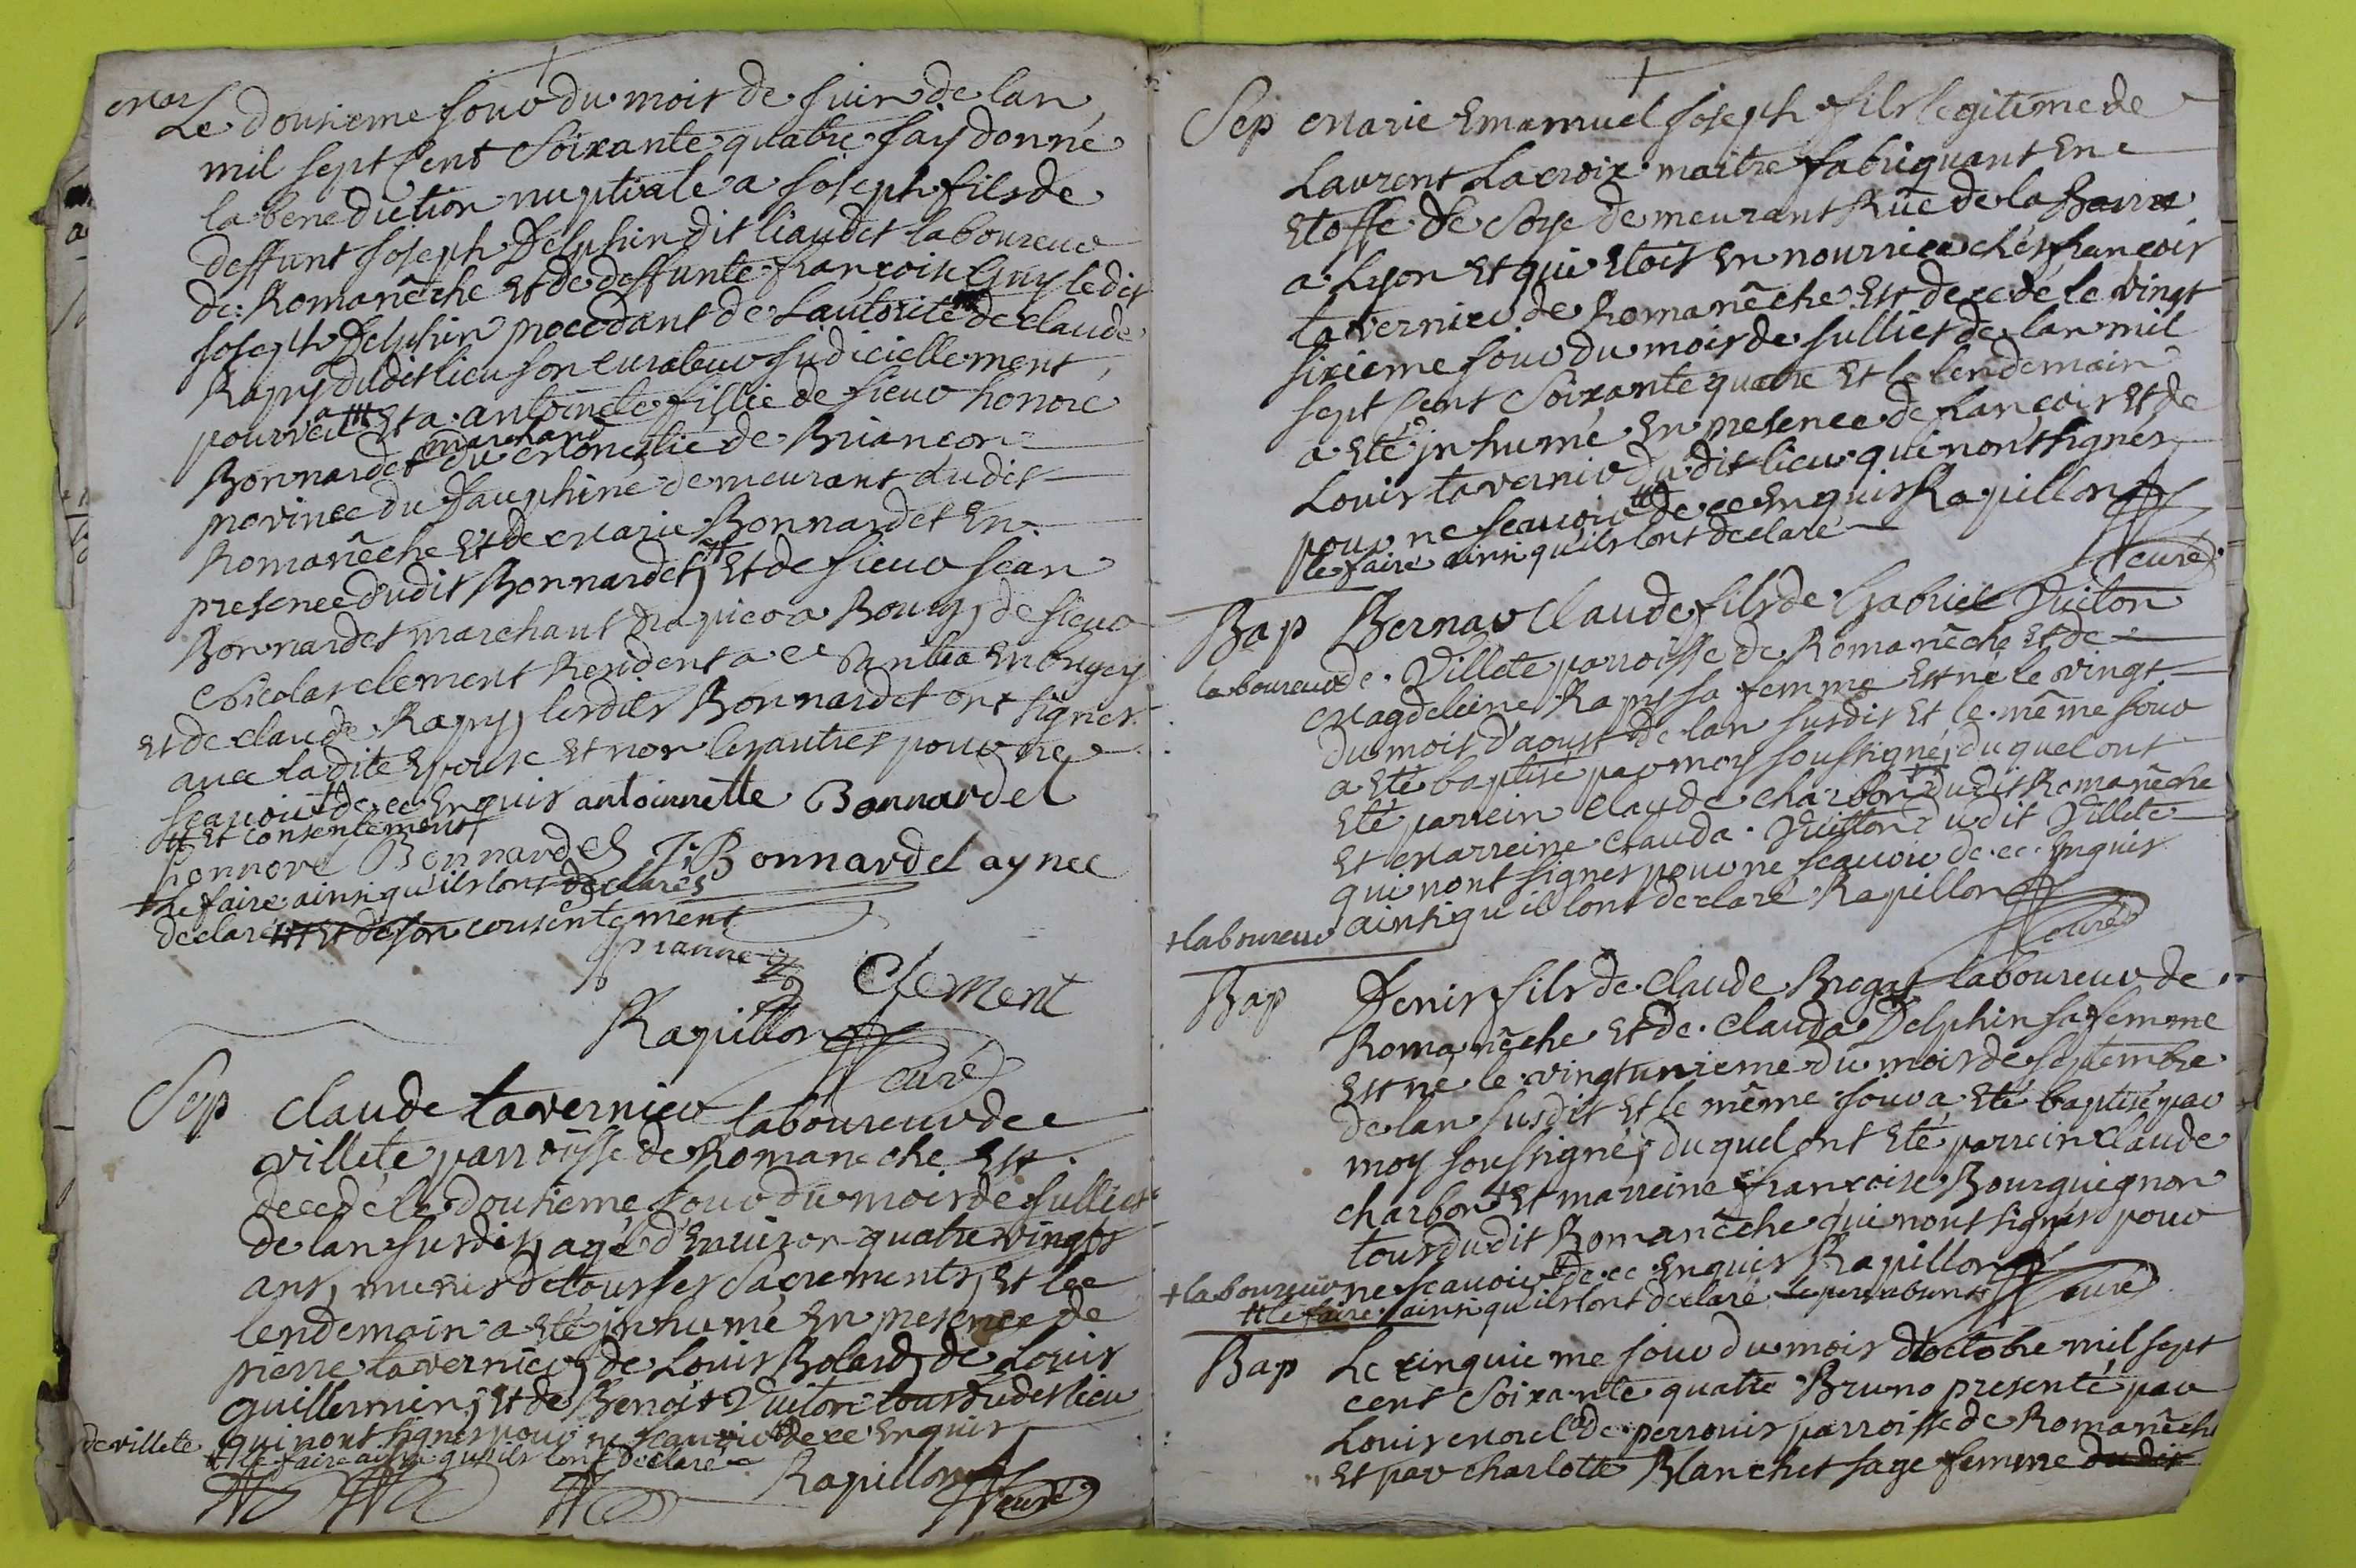 Mar Le dousieme jour du mois de juin de lan
mil sept cent Soixante quatre jay donné
la benediction nuptiale a joseph fils de
deffunt joseph Delphin dit liaudet laboureur
de Romanêche et de deffunte françoise Guy ledit
joseph Delphin procedant de Lautorité de claude
Rapy dudit lieu son curateur judiciellement
pourveu et a antoinete fillie de sieur honoré
Bonnardet marchand du Monestie de Briançon
province du Dauphiné demeurant audit
Romanêche et de Marie Bonnardet En
presence dudit Bonnardet, et de sieur jean
Bonnardet marchant drapier a Bourg, de sieur
Nicolas clement Resident a en bugey
et de claude Rapy, lesdits Bonnardet ont signes
avec ladite Epouse et non les autres pour ne
scavoir de ce Enquis antoinnette Bonnardel
## et consentement
honnoré Bonnardel J. Bonnardel aynee
le faire ainsi qu'ils lont declarés
declaré ### et de son consentement
pianne Clement
Rapillon
curé
Sep claude tavernier laboureur de
villete parroisse de Romaneche est
decedé le dousieme jour du mois de julliet
de lan susdit, agé d'Environ quatre vingts
ans, munis de tous ses Sacrements, et le
lendemain a eté inhumé En presence de
pierre tavernier, de Louis Bolard, de Louis
guillermin, et de Benoit Vuiton tous dudit lieu
de villete qui nont signes pour ne scavoir de ce Enquis
## le faire ainsi qu'ils lont declaré
Rapillon
curé
Sep Marie Emanuel joseph fils legitime de
Laurent Lacroix maitre fabriquant En
Etoffe de Soye demeurant Rüe de la Barre
a Lyon et qui etoit En nourrice chés françois
tavernier de Romanêche Est decedé le vingt
sixieme jour du mois de julliet de lan mil
sept cent Soixante quatre et le lendemain
a eté inhumé En presence de françois et de
Louis tavernier du dit lieu qui nont signés
pour ne scavoir de ce Enquis Rapillon
le faire ainsi qu'ils lont declaré
curé
Bap Bernar Claude fils de Gabriel Vuiton
laboureur de Villete parroisse de Romanêche et de
Magdeleine Rapy sa femme Est né le vingt
du mois d'aoust de lan susdit et le même jour
a eté baptisé par moy soussigné, du quel ont
eté parrein Claude charbon dudit Romanêche
et Marreine Clauda Vuitton du dit Villete
qui nont signes pour ne scavoir de ce Enquis
+ laboureur ainsi qu'il lont declaré Rapillon
curé
Bap Denis fils de Claude Brogat laboureur de
Romanêche et de Clauda Delphin sa femme
Est né le vingtunieme du mois de septembre
de lan susdit et le même jour a eté baptisé par
moy soussigné, du quel ont eté parrein claude
charbon + et marreine françoise Bourguignon
tous dudit Romanêche qui nont signes pour
+ laboureur ne scavoir de ce Enquis Rapillon
## le faire ainsi qu'ils lont declaré le pere absent curé
Bap Le cinquieme jour du mois d'octobre mil sept
cent Soixante quatre Bruno presenté par
Louis morel de perrouis parroisse de Romanêche
et par charlotte Blanchet sage femme du dit